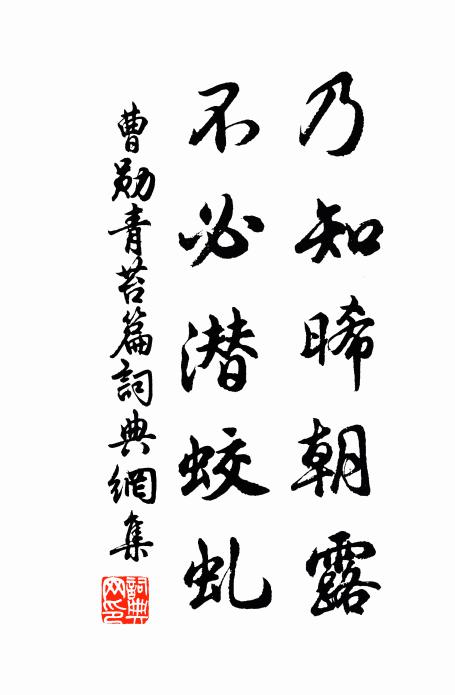 乃知晞朝露
不必潜蛟虬
曹勛青苔篇詞典網集
詞典網印